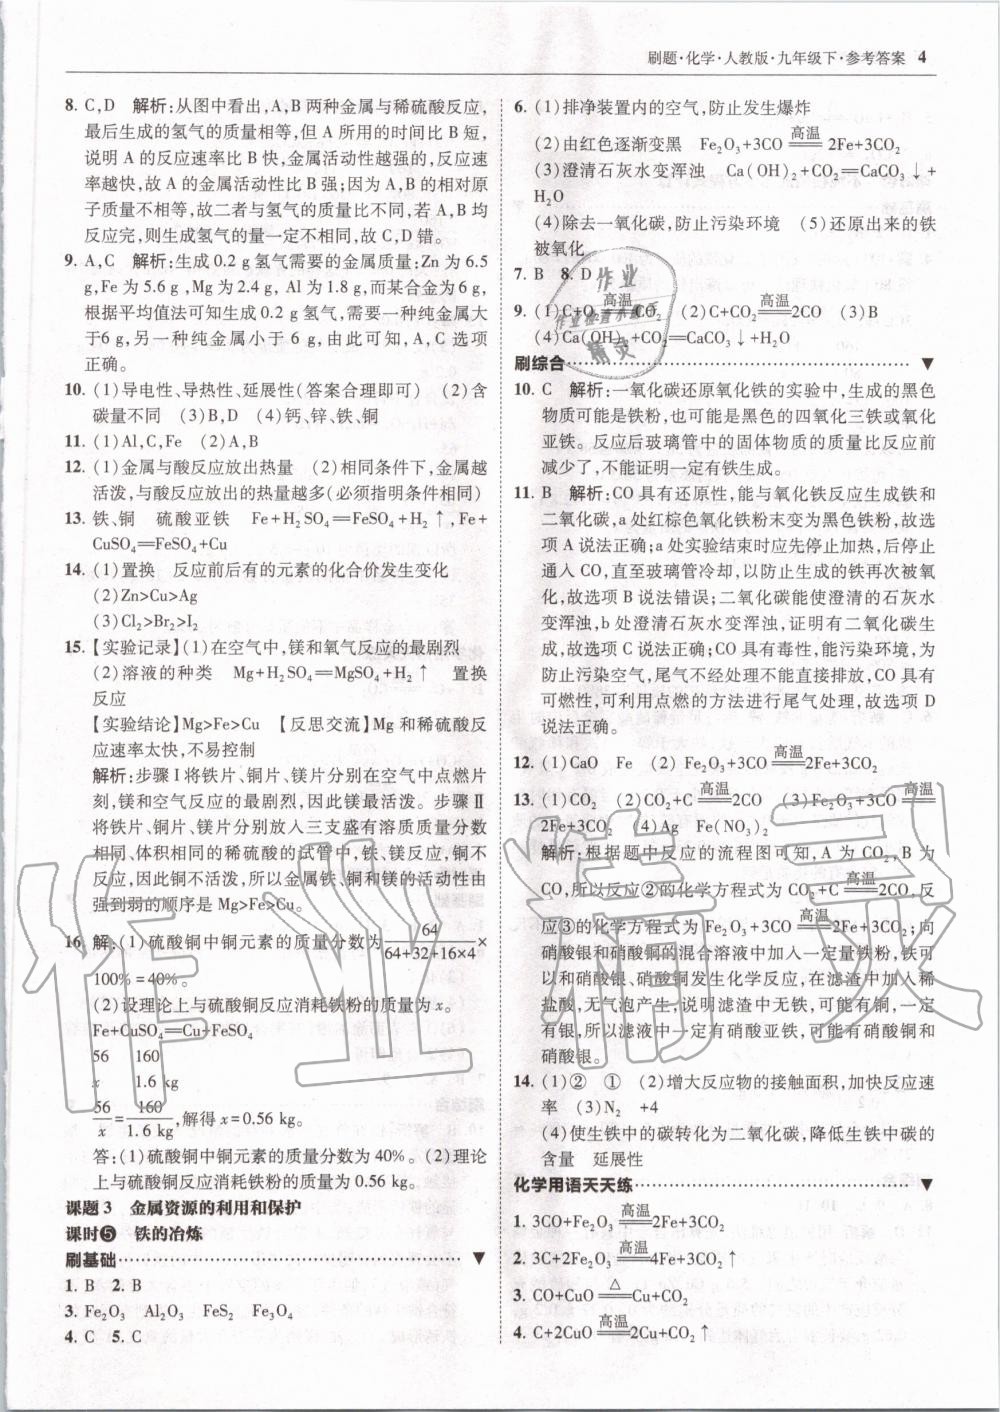 刷题·化学·人教版·九年级下·参考答案 4
8. C,D 解析:从图中看出,A、B两种金属与稀硫酸反应,
最后生成的氢气的质量相等,但A所用的时间比B短,
说明A的反应速率比B快,金属活动性越强的,反应速
率越快,故A的金属活动性比B强;因为A、B的相对原
子质量不相等,故二者与氢气的质量比不同,若A、B均
反应完,则生成氢气的量一定不相同,故C、D错。
9. A,C 解析:生成0.2 g氢气需要的金属质量:Zn为6.5
g,Fe为5.6 g,Mg为2.4 g, Al为1.8 g,而某合金为6 g,
根据平均值法可知生成0.2 g氢气,需要一种纯金属大
于6 g,另一种纯金属小于6 g,由此可知,A、C选项
正确。
10. (1)导电性、导热性、延展性(答案合理即可) (2)含
碳量不同 (3)B,D (4)钙、锌、铁、铜
11. (1)Al,C,Fe (2)A,B
12. (1)金属与酸反应放出热量 (2)相同条件下,金属越
活泼,与酸反应放出的热量越多(必须指明条件相同)
13. 铁、铜 硫酸亚铁 Fe+H₂SO₄══FeSO₄+H₂↑,Fe+
CuSO₄══FeSO₄+Cu
14. (1)置换 反应前后有的元素的化合价发生变化
(2)Zn>Cu>Ag
(3)Cl₂>Br₂>I₂
15. 【实验记录】(1)在空气中,镁和氧气反应的最剧烈
(2)溶液的种类 Mg+H₂SO₄══MgSO₄+H₂↑ 置换
反应
【实验结论】Mg>Fe>Cu 【反思交流】Mg和稀硫酸反
应速率太快,不易控制
解析:步骤Ⅰ将铁片、铜片、镁片分别在空气中点燃片
刻,镁和空气反应的最剧烈,因此镁最活泼。步骤Ⅱ
将铁片、铜片、镁片分别放入三支盛有溶质质量分数
相同、体积相同的稀硫酸的试管中,铁、镁反应,铜不
反应,因此铜不活泼,所以金属铁、铜和镁的活动性由
强到弱的顺序是Mg>Fe>Cu。
16. 解:(1)硫酸铜中铜元素的质量分数为 64/(64+32+16×4) ×
100% = 40%。
(2)设理论上与硫酸铜反应消耗铁粉的质量为x。
Fe+CuSO₄══Cu+FeSO₄
56 160
x 1.6 kg
56/x = 160/1.6 kg,解得x=0.56 kg。
答:(1)硫酸铜中铜元素的质量分数为40%。(2)理论
上与硫酸铜反应消耗铁粉的质量为0.56 kg。
课题3 金属资源的利用和保护
课时❺ 铁的冶炼
刷基础
1. B 2. B
3. Fe₂O₃ Al₂O₃ FeS₂ Fe₃O₄
4. C 5. C
6. (1)排净装置内的空气,防止发生爆炸
(2)由红色逐渐变黑 Fe₂O₃+3CO ═高温═ 2Fe+3CO₂
(3)澄清石灰水变浑浊 Ca(OH)₂+CO₂══CaCO₃↓+
H₂O
(4)除去一氧化碳,防止污染环境 (5)还原出来的铁
被氧化
7. B 8. D
9. (1)C+O₂ ═高温═ CO₂ (2)C+CO₂ ═高温═ 2CO (3)B
(4)Ca(OH)₂+CO₂══CaCO₃↓+H₂O
刷综合
10. C 解析:一氧化碳还原氧化铁的实验中,生成的黑色
物质可能是铁粉,也可能是黑色的四氧化三铁或氧化
亚铁。反应后玻璃管中的固体物质的质量比反应前
减少了,不能证明一定有铁生成。
11. B 解析:CO具有还原性,能与氧化铁反应生成铁和
二氧化碳,a处红棕色氧化铁粉末变为黑色铁粉,故选
项A说法正确;a处实验结束时应先停止加热,后停止
通入CO,直至玻璃管冷却,以防止生成的铁再次被氧
化,故选项B说法错误;二氧化碳能使澄清的石灰水
变浑浊,b处澄清石灰水变浑浊,证明有二氧化碳生
成,故选项C说法正确;CO具有毒性,能污染环境,为
防止污染空气,尾气不经处理不能直接排放,CO具有
可燃性,可利用点燃的方法进行尾气处理,故选项D
说法正确。
12. (1)CaO Fe (2) Fe₂O₃+3CO ═高温═ 2Fe+3CO₂
13. (1)CO₂ (2)CO₂+C ═高温═ 2CO (3)Fe₂O₃+3CO ═高温═
2Fe+3CO₂ (4)Ag Fe(NO₃)₂
解析:根据题中反应的流程图可知,A为CO₂,B为
CO,所以反应②的化学方程式为CO₂+C ═高温═ 2CO,反
应③的化学方程式为Fe₂O₃+3CO ═高温═ 2Fe+3CO₂;向
硝酸银和硝酸铜的混合溶液中加入一定量铁粉,铁可
以和硝酸银、硝酸铜发生化学反应,在滤渣中加入稀
盐酸,无气泡产生,说明滤渣中无铁,可能有铜,一定
有银,所以滤液中一定有硝酸亚铁,可能有硝酸铜和
硝酸银。
14. (1)② ① (2)增大反应物的接触面积,加快反应速
率 (3)N₂ +4
(4)使生铁中的碳转化为二氧化碳,降低生铁中碳的
含量 延展性
化学用语天天练
1. 3CO+Fe₂O₃ ═高温═ 2Fe+3CO₂
2. 3C+2Fe₂O₃ ═高温═ 4Fe+3CO₂↑
3. CO+CuO ═△═ Cu+CO₂
4. C+2CuO ═高温═ 2Cu+CO₂↑
作业精灵